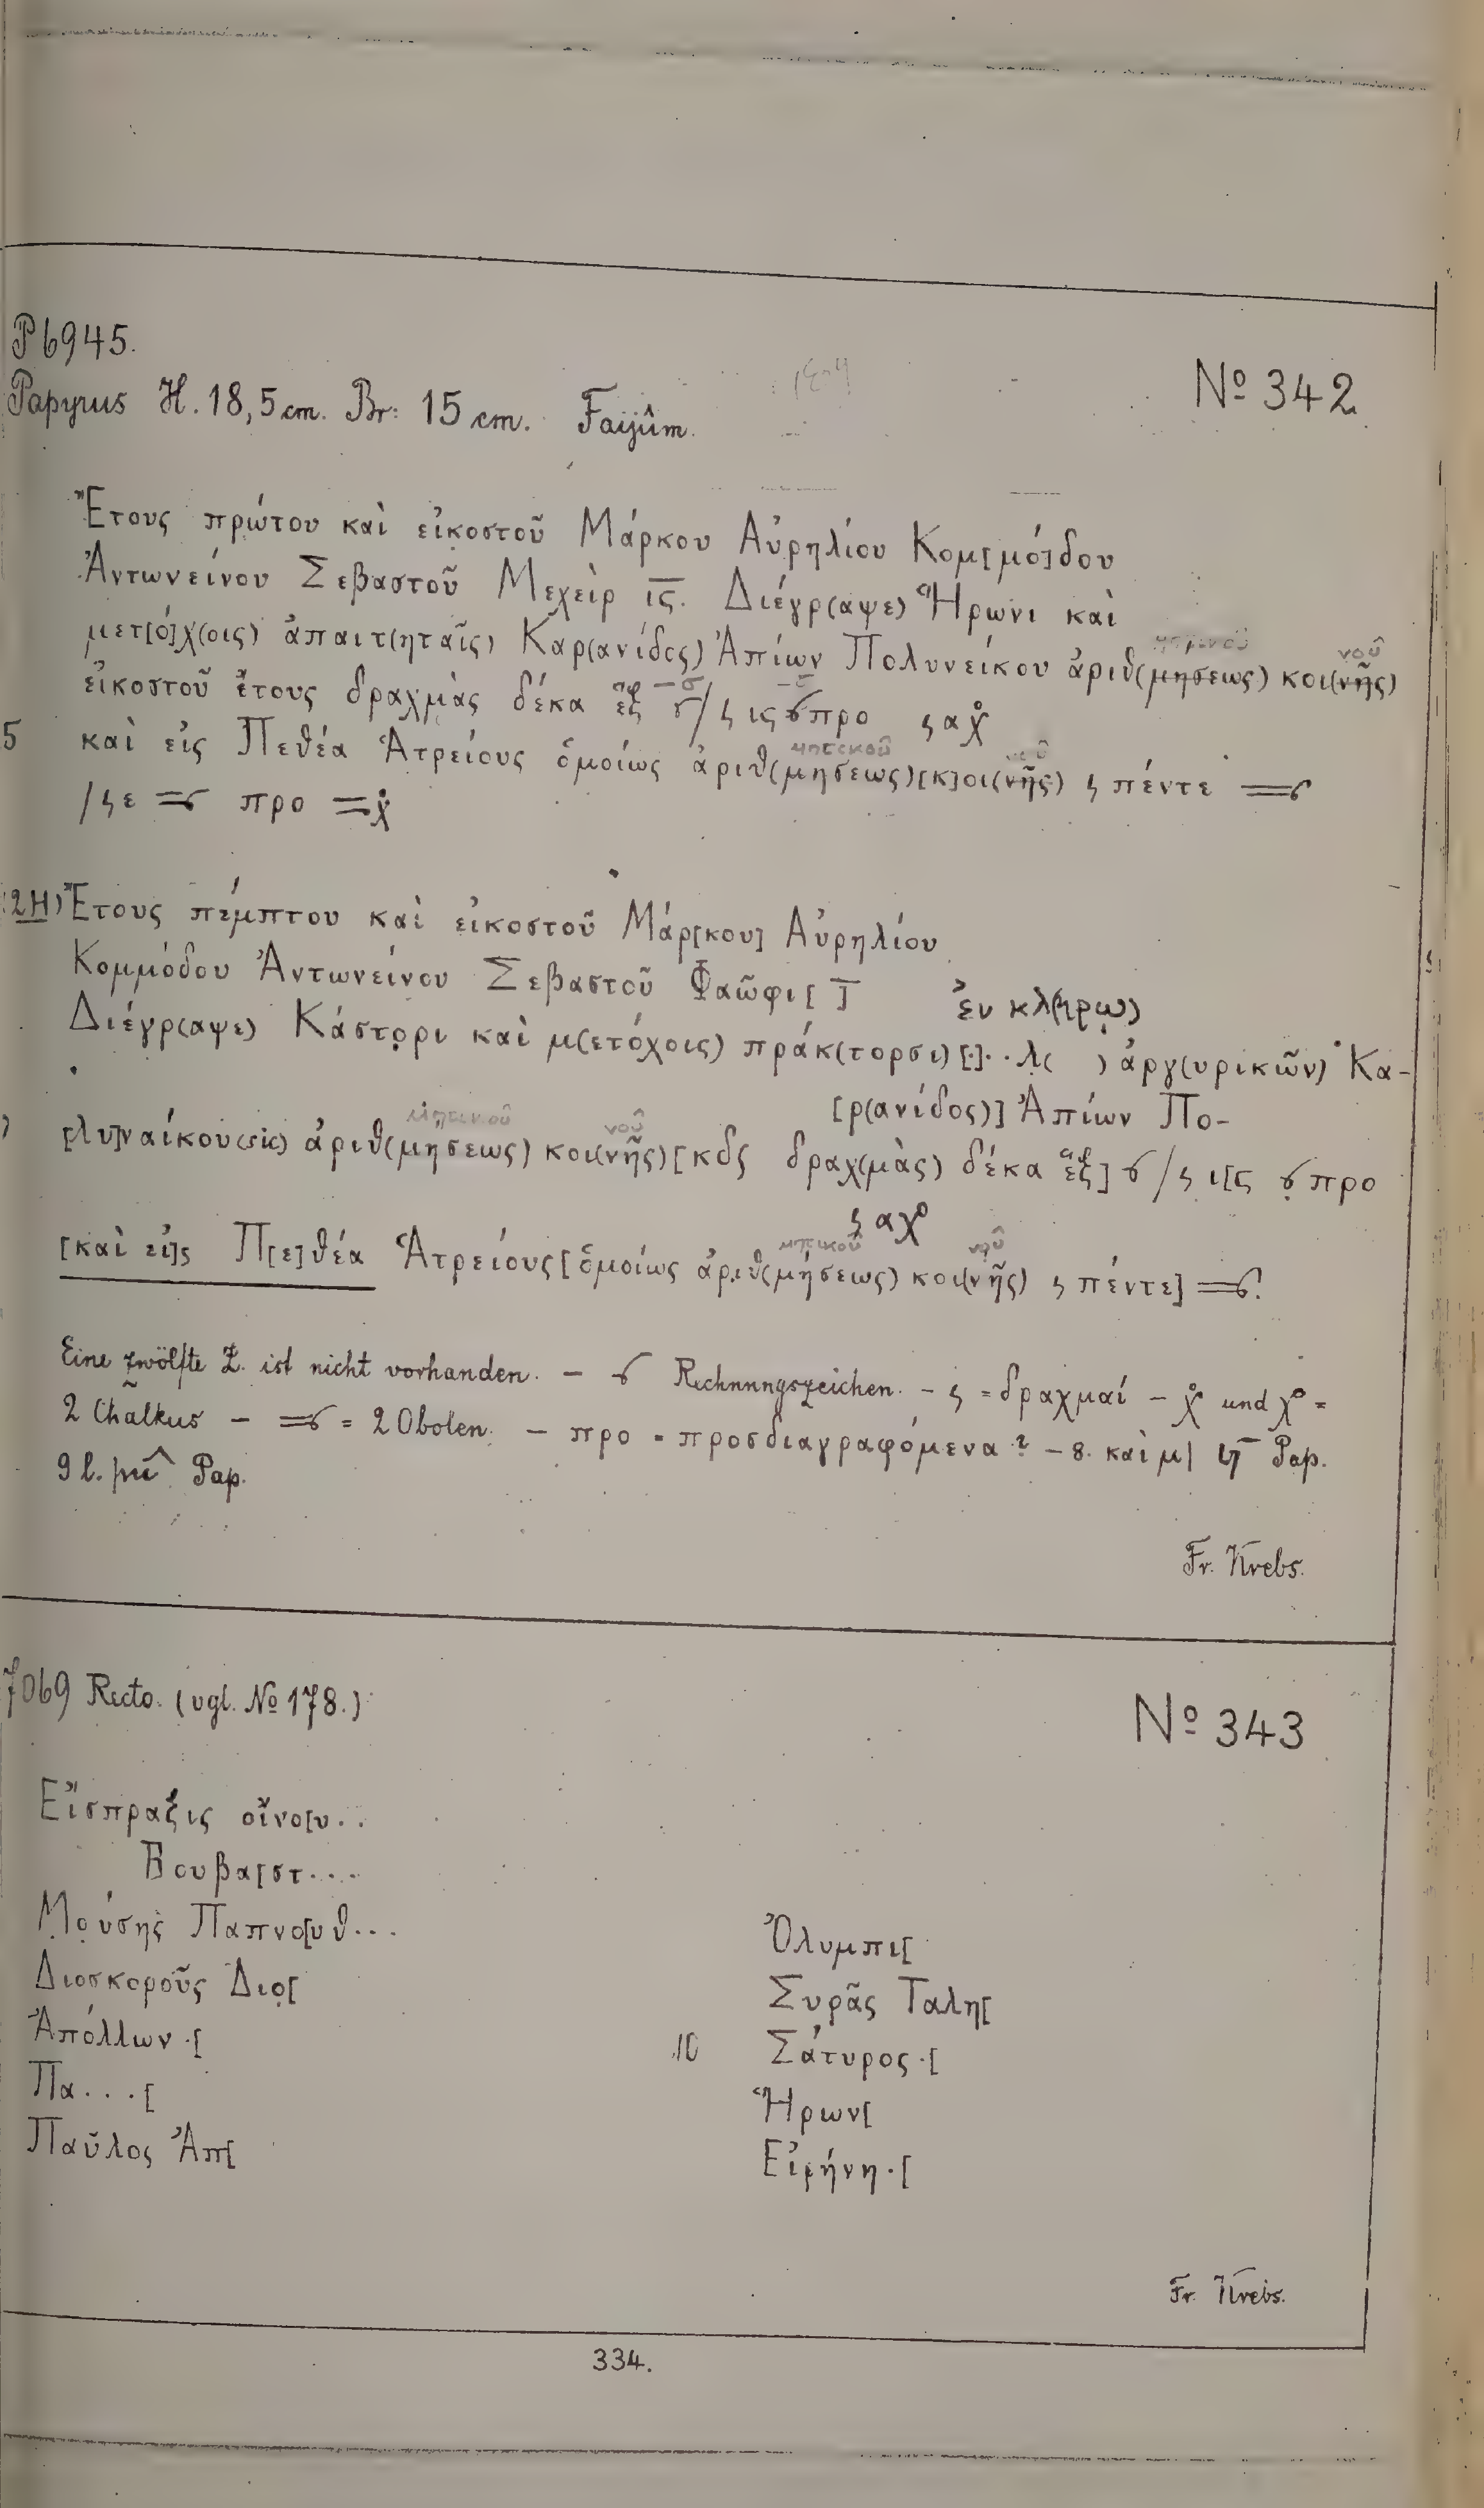 P 6945.
Papyrus H. 18,5 cm. Br: 15 cm. Faijûm.
Nº 342
Ἔτους πρώτου καὶ εἰκοστοῦ Μάρκου Αὐρηλίου Κομ[μό]δου
Ἀντωνείνου Σεβαστοῦ Μεχεὶρ ις. Διέγρ(αψε) Ἥρωνι καὶ
μετ[ό]χ(οις) ἀπαιτ(ηταῖς) Καρ(ανίδος) Ἀπίων Πολυνείκου ἀριθ(μησεως) κοι(νῆς)
νοῦ
εἰκοστοῦ ἔτους δραχμὰς δέκα ἓξ / ϛ ις προ ϛ α χο
5 καὶ εἰς Πεθέα Ἁτρείους ὁμοίως ἀριθ(μησεως) [κ]οι(νῆς) ϛ πέντε =
μητικοῦ
/ ϛ ε = προ = χο
(2H) Ἔτους πέμπτου καὶ εἰκοστοῦ Μάρ[κου] Αὐρηλίου
Κομμόδου Ἀντωνείνου Σεβαστοῦ Φαῶφι [ ]
ἐν κλ(ήρῳ)
Διέγρ(αψε) Κάστορι καὶ μ(ετόχοις) πράκ(τορσι) [.]. . λ( ) ἀργ(υρικῶν) Κα-
[ρ(ανίδος)] Ἀπίων Πο-
μητικοῦ νοῦ
[λυ]ναίκου (sic) ἀριθ(μησεως) κοι(νῆς) [κδς δραχ(μὰς) δέκα ἓξ] / ϛ ι[ς προ
ϛ αχο
μητικοῦ νοῦ
[καὶ εἰ]ς Π[ε]θέα Ἁτρείους [ὁμοίως ἀριθ(μήσεως) κοι(νῆς) ϛ πέντε] =
Eine zwölfte Z. ist nicht vorhanden. – Rechnungszeichen. – ϛ = δραχμαί – χο und χο =
2 Chalkus – = = 2 Obolen. – προ = προσδιαγραφόμενα ? – 8. καὶ μ| Pap.
9 l. Pap.
Fr. Krebs.
7069 Recto. (vgl. Nº 178.)
Nº 343
Εἴσπραξις οἴνο[υ..
Βουβα[στ....
Μούσης Παπνο[υθ...
Διοσκοροῦς Διο[
Ἀπόλλων .[
Πα....[
Παῦλος Ἀπ[
Ὀλυμπι[
Συρᾶς Ταλη[
10 Σάτυρος .[
Ἥρων[
Εἰρήνη .[
Fr. Krebs.
334.